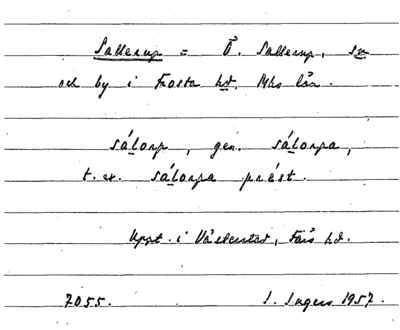 Sallerup = Ö. Sallerup, sn
och by i Frosta hd, Mhs län.
sálorp, gen. sálorpa,
t. ex. sálorpa prést.
Uppt. i Våsterstad, Färs hd.
7055. I. Ingers 1957.